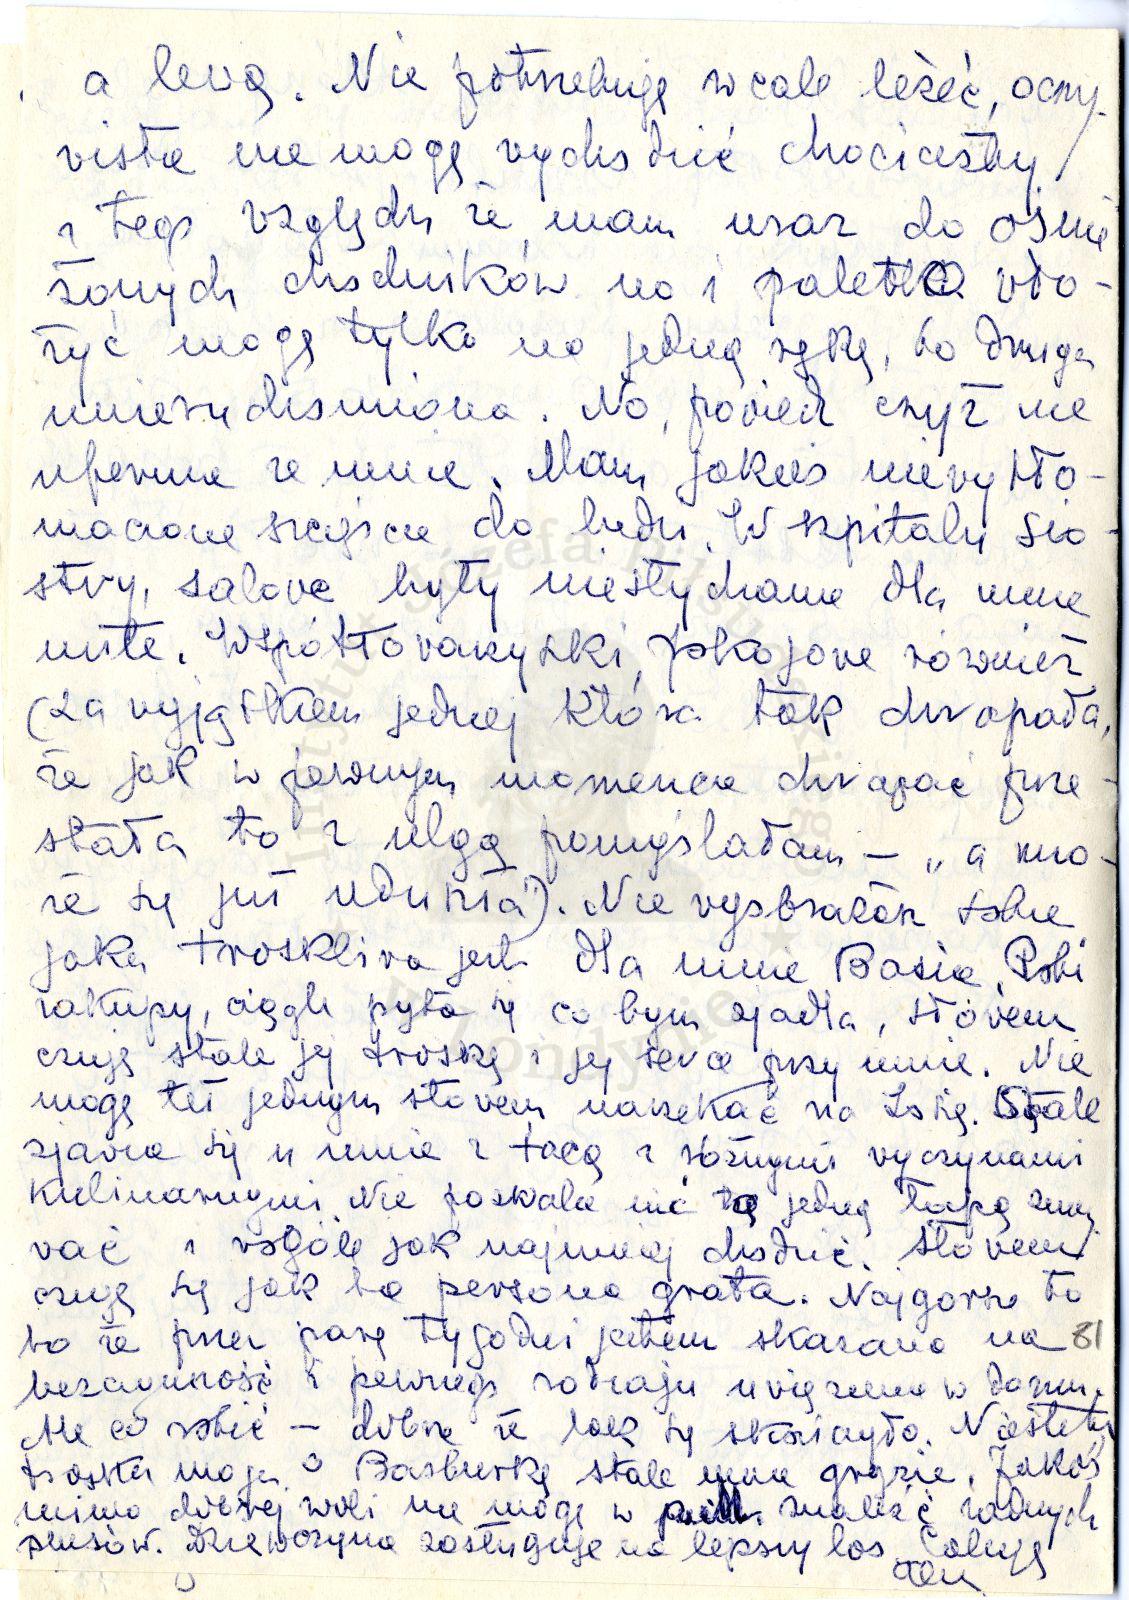 a lewą. Nie potrzebuję wcale leżeć, oczy-
wiste nie mogę wychodzić chociażby
z tego względu że mam uraz do ośnie
żonych chodników no i paletko wło-
żyć mogę tylko na jedną rękę, bo druga
unieruchomiona. No, powiedz czyż nie
oferma ze mnie. Mam jakieś niewytło-
maczone szczęście do ludzi. W szpitalu sio-
stry, salowe były niesłychanie dla mnie
miłe. Współtowarzyszki pokojowe również
(za wyjątkiem jednej która tak chrapała,
że jak w pewnym momencie chrapać prze-
stała to z ulgą pomyślałam — „a mo-
że się już udusiła"). Nie wyobrażasz sobie
jaka troskliwa jest dla mnie Basia. Robi
zakupy, ciągle pyta się co bym zjadła, słowem
czuję stale jej troskę i jej serce przy mnie. Nie
mogę też jednym słowem narzekać na Zosię. Stale
zjawia się u mnie z tacą z różnymi wyczynami
kulinarnymi. Nie pozwala mi tą jedną łapą zmy
wać i wogóle jak najmniej chodzić. Słowem
czuję się jak ta persona grata. Najgorsze to
to że przez parę tygodni jestem skazana na 81
bezczynność i pewnego rodzaju uwięzienie w domu.
Ale co robić — dobrze że tak się skończyło. Niestety
troska moja o Basieńkę stale mnie gryzie. Jakoś
mimo dobrej woli nie mogę w znaleźć żadnych
plusów. Dziewczyna zasługuje na lepszy los. Całuję